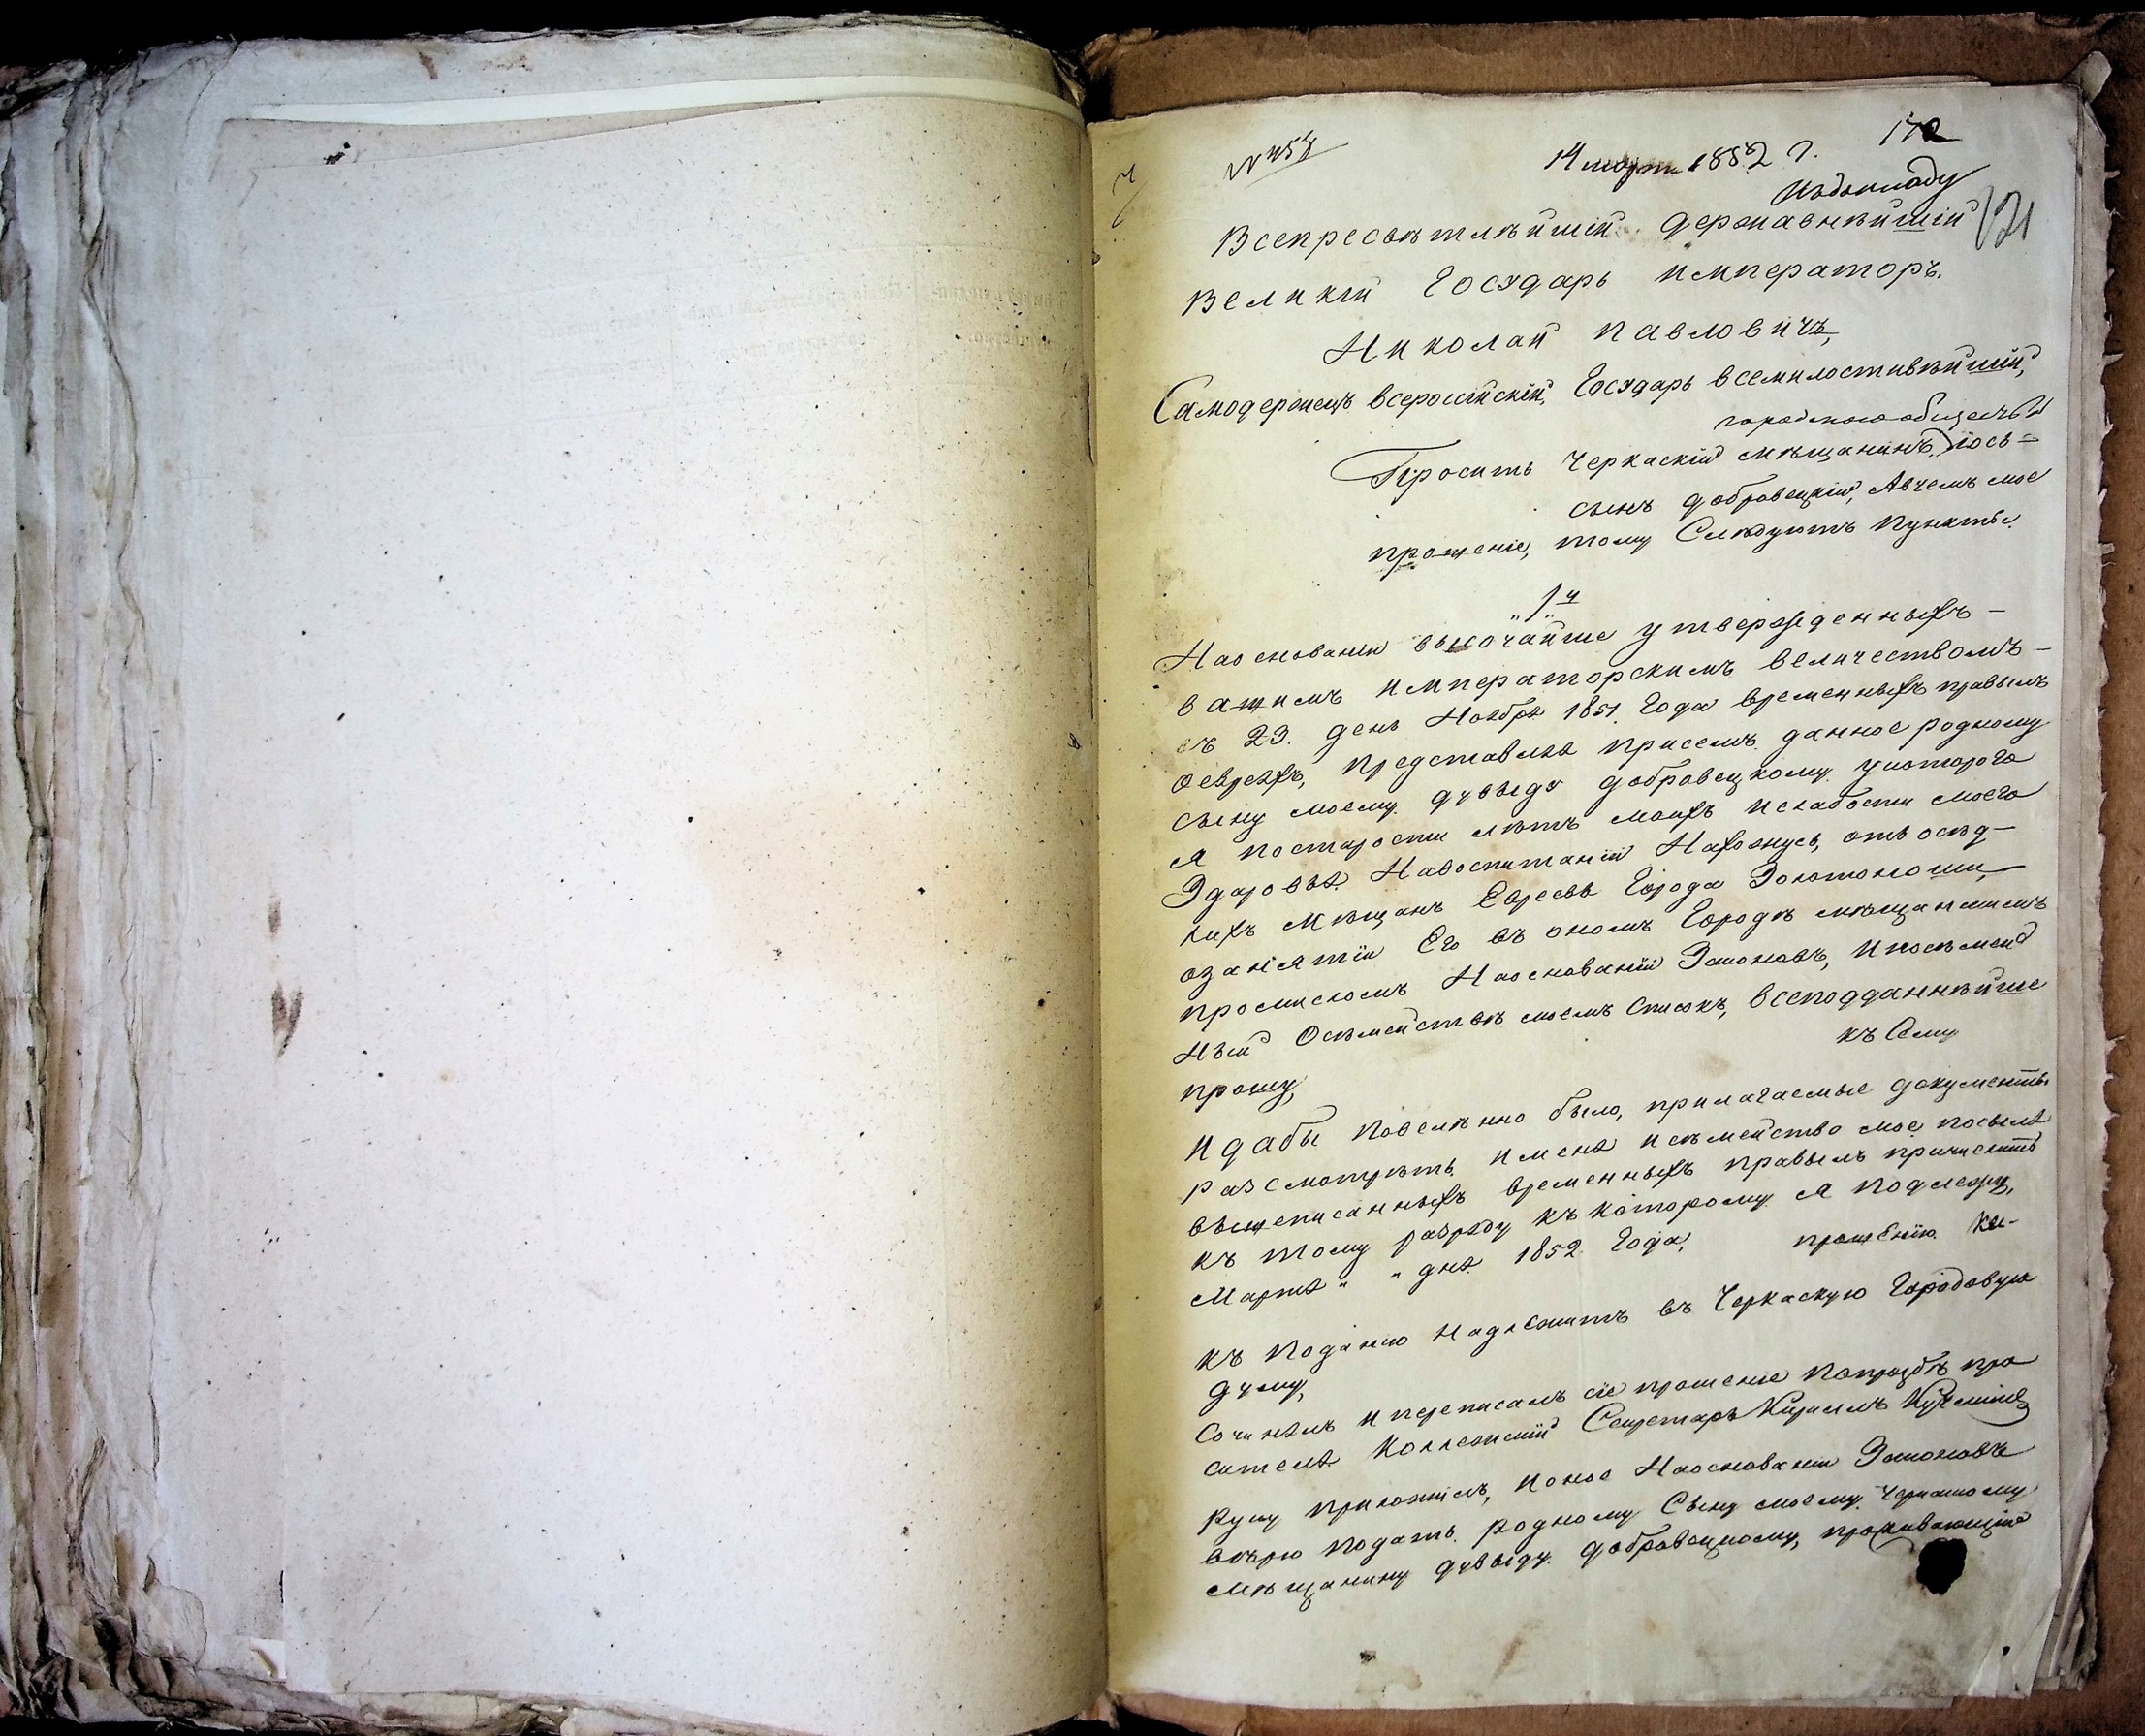 14 марта 1852 г.
Къ докладу
121
Всепресвѣтлѣйшій Державнѣйшій
Великій Государь Императоръ
Николай Павловичъ,
Самодержецъ всеросійскій, Государь всемилостивѣйшій,
Проситъ Черкаскій мѣщанинъ
сынъ Добровецкій, Авчемъ мое
прошеніе, тому Слѣдуютъ пункты.
1й
Наоснованіи высочайше утвержденныхъ –
вашимъ Императорскимъ величествомъ –
въ 23. день Ноября 1851. Года временныхъ правылъ
оевреяхъ, представляя присемъ данное родному
сыну моему Дувыду Добровецкому укоторого
я постарости лѣтъ моихъ ислабости моего
Здаровья Навоспитаніи Нахожусь, отъ осѣд–
лихъ мѣщанъ Евреевъ Города Золотоноши
озанятіи Его въ ономъ Городѣ мѣщанскимъ
промисломъ Наоснованіи Законовъ, Ипосѣмей
ный Осѣмействѣ моемъ Списокъ, всеподданнѣйше
прошу,
къ Сему
И дабы повелѣнно было, прилагаемые документы
разсмотрѣть Именя исѣмейство мое посылѣ
вышеписанныхъ временныхъ правылъ причислить
къ тому разряду къ которому я подлежу,
Марта " " дня 1852 Года, прошенію
къ поданію Надлежитъ въ Черкаскую Городовую
думу,
Сочинялъ Ипереписалъ сіе прошеніе попрозбѣ про
сителя Коллежскій Секретарь Кирилъ
Руку приложилъ, Ионое Наоснованіи Законовъ
вѣрю подать родному Сыну моему Черкаскому
мѣщанину Дувыду Добровецкому, проживающій